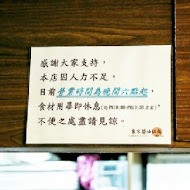 感謝大家支持，
本店因人力不足，
目前營業時間為晚間六點起，
食材用尽即休息
不便之處盡請見諒。